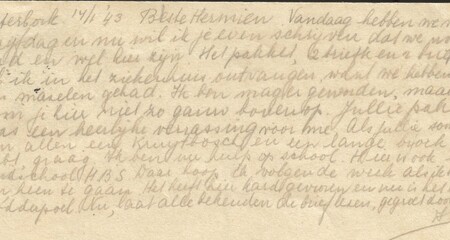 terbork 14/1 '43 Beste Hermien Vandaag hebben we
dag en nu wil ik je even schrijven dat we
en wel hier zijn. Het pakket, 2 briefk en 2
ik in het ziekenhuis ontvangen, want we hebben
mazelen gehad. Ik ben mager geworden, maar
je hier niet zo gauw bovenop. Jullie
as een heerlijke verrassing voor me. Als jullie
allen een en een lange broek
graag. Ik ben nu hulp op school. Hier is ook
school HBS Daar hoop ik volgende week als
heen te gaan. Het heeft hier hard gevroren en nu is het
laat alle bekenden de brief lezen, gegroet door
H